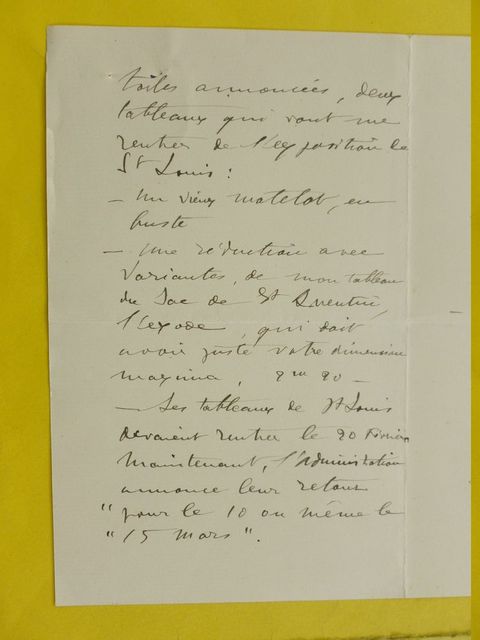 toiles annoncées, deux
tableaux qui vont me
rentrer de l'exposition de
St Louis :
— Un vieux matelot, en
buste
— Une réduction avec
variantes, de mon tableau
du Sac de St Quentin,
l'Exode, qui doit
avoir juste votre dimension
maxima, 2 m 20 —
— Les tableaux de St Louis
devaient rentrer le 20 Février
Maintenant, l'Administration
annonce leur retour
"pour le 10 ou même le
"15 mars".